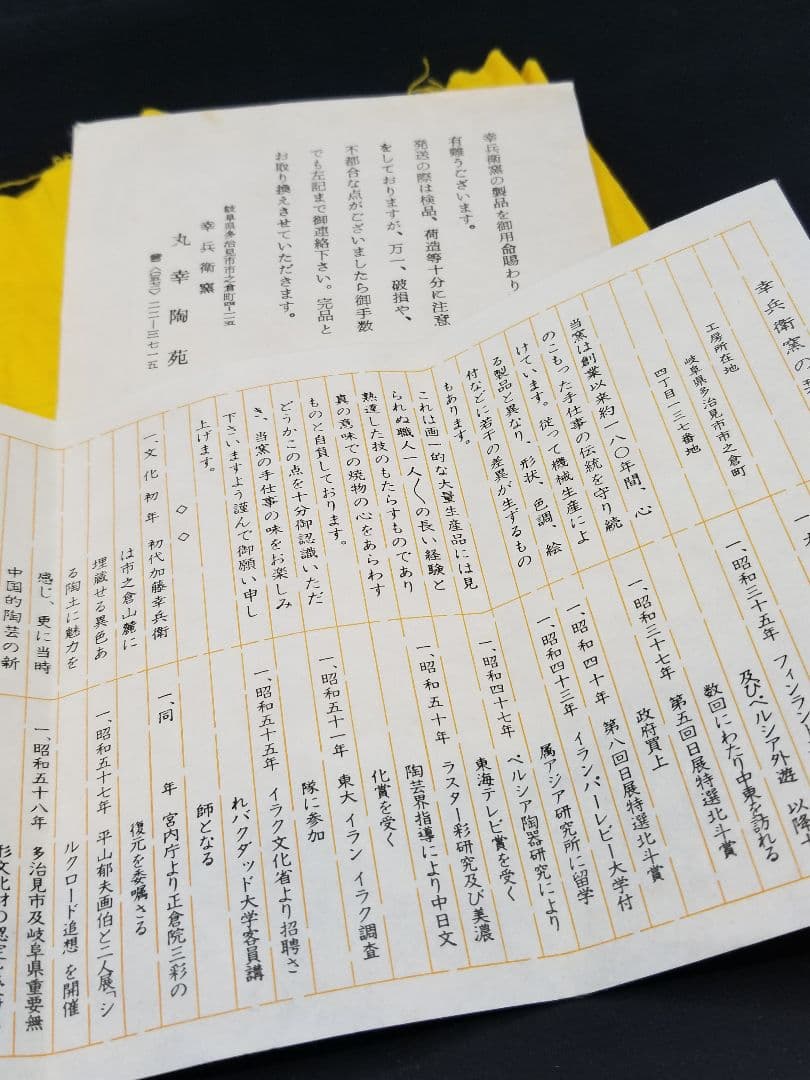 幸兵衛窯の製品を御用命賜わり
有難うございます。
発送の際は検品、荷造等十分に注意
をしておりますが、万一、破損や、
不都合な点がございましたら御手数
でも左記まで御連絡下さい。完品と
お取り換えさせていただきます。
岐阜県多治見市市之倉町四ー二五
幸兵衛窯
丸幸陶苑
☎〈〇五七二〉二二ー三七一五
幸兵衛窯の
工房所在地
岐阜県多治見市市之倉町
四丁目一三七番地
当窯は創業以来約一八〇年間、心
のこもった手仕事の伝統を守り続
けています。従って機械生産によ
る製品と異なり、形状、色調、絵
付などに若干の差異が生ずるもの
もあります。
これは画一的な大量生産品には見
られぬ職人一人〱の長い経験と
熟達した技のもたらすものであり
真の意味での焼物の心をあらわす
ものと自負しております。
どうかこの点を十分御認識いただ
き、当窯の手仕事の味をお楽しみ
下さいますよう謹んで御願い申し
上げます。
◇◇
一、文化初年 初代加藤幸兵衛
は市之倉山麓に
埋蔵せる異色あ
る陶土に魅力を
感じ、更に当時
中国的陶芸の新
一、昭和三十五年 フィンランド
及びペルシア外遊 以降
数回にわたり中東を訪れる
一、昭和三十七年 第五回日展特選北斗賞
政府買上
一、昭和四十年 第八回日展特選北斗賞
一、昭和四十三年 イランパーレビー大学付
属アジア研究所に留学
ペルシア陶器研究により
東海テレビ賞を受く
一、昭和四十七年 ラスター彩研究及び美濃
陶芸界指導により中日文
化賞を受く
一、昭和五十年
東大 イラン イラク調査
隊に参加
一、昭和五十一年
イラク文化省より招聘さ
れバクダッド大学客員講
師となる
一、昭和五十五年
宮内庁より正倉院三彩の
復元を委嘱さる
一、同年
平山郁夫画伯と二人展「シ
ルクロード追想」を開催
一、昭和五十七年
多治見市及岐阜県重要無
形文化財の認定を
一、昭和五十八年